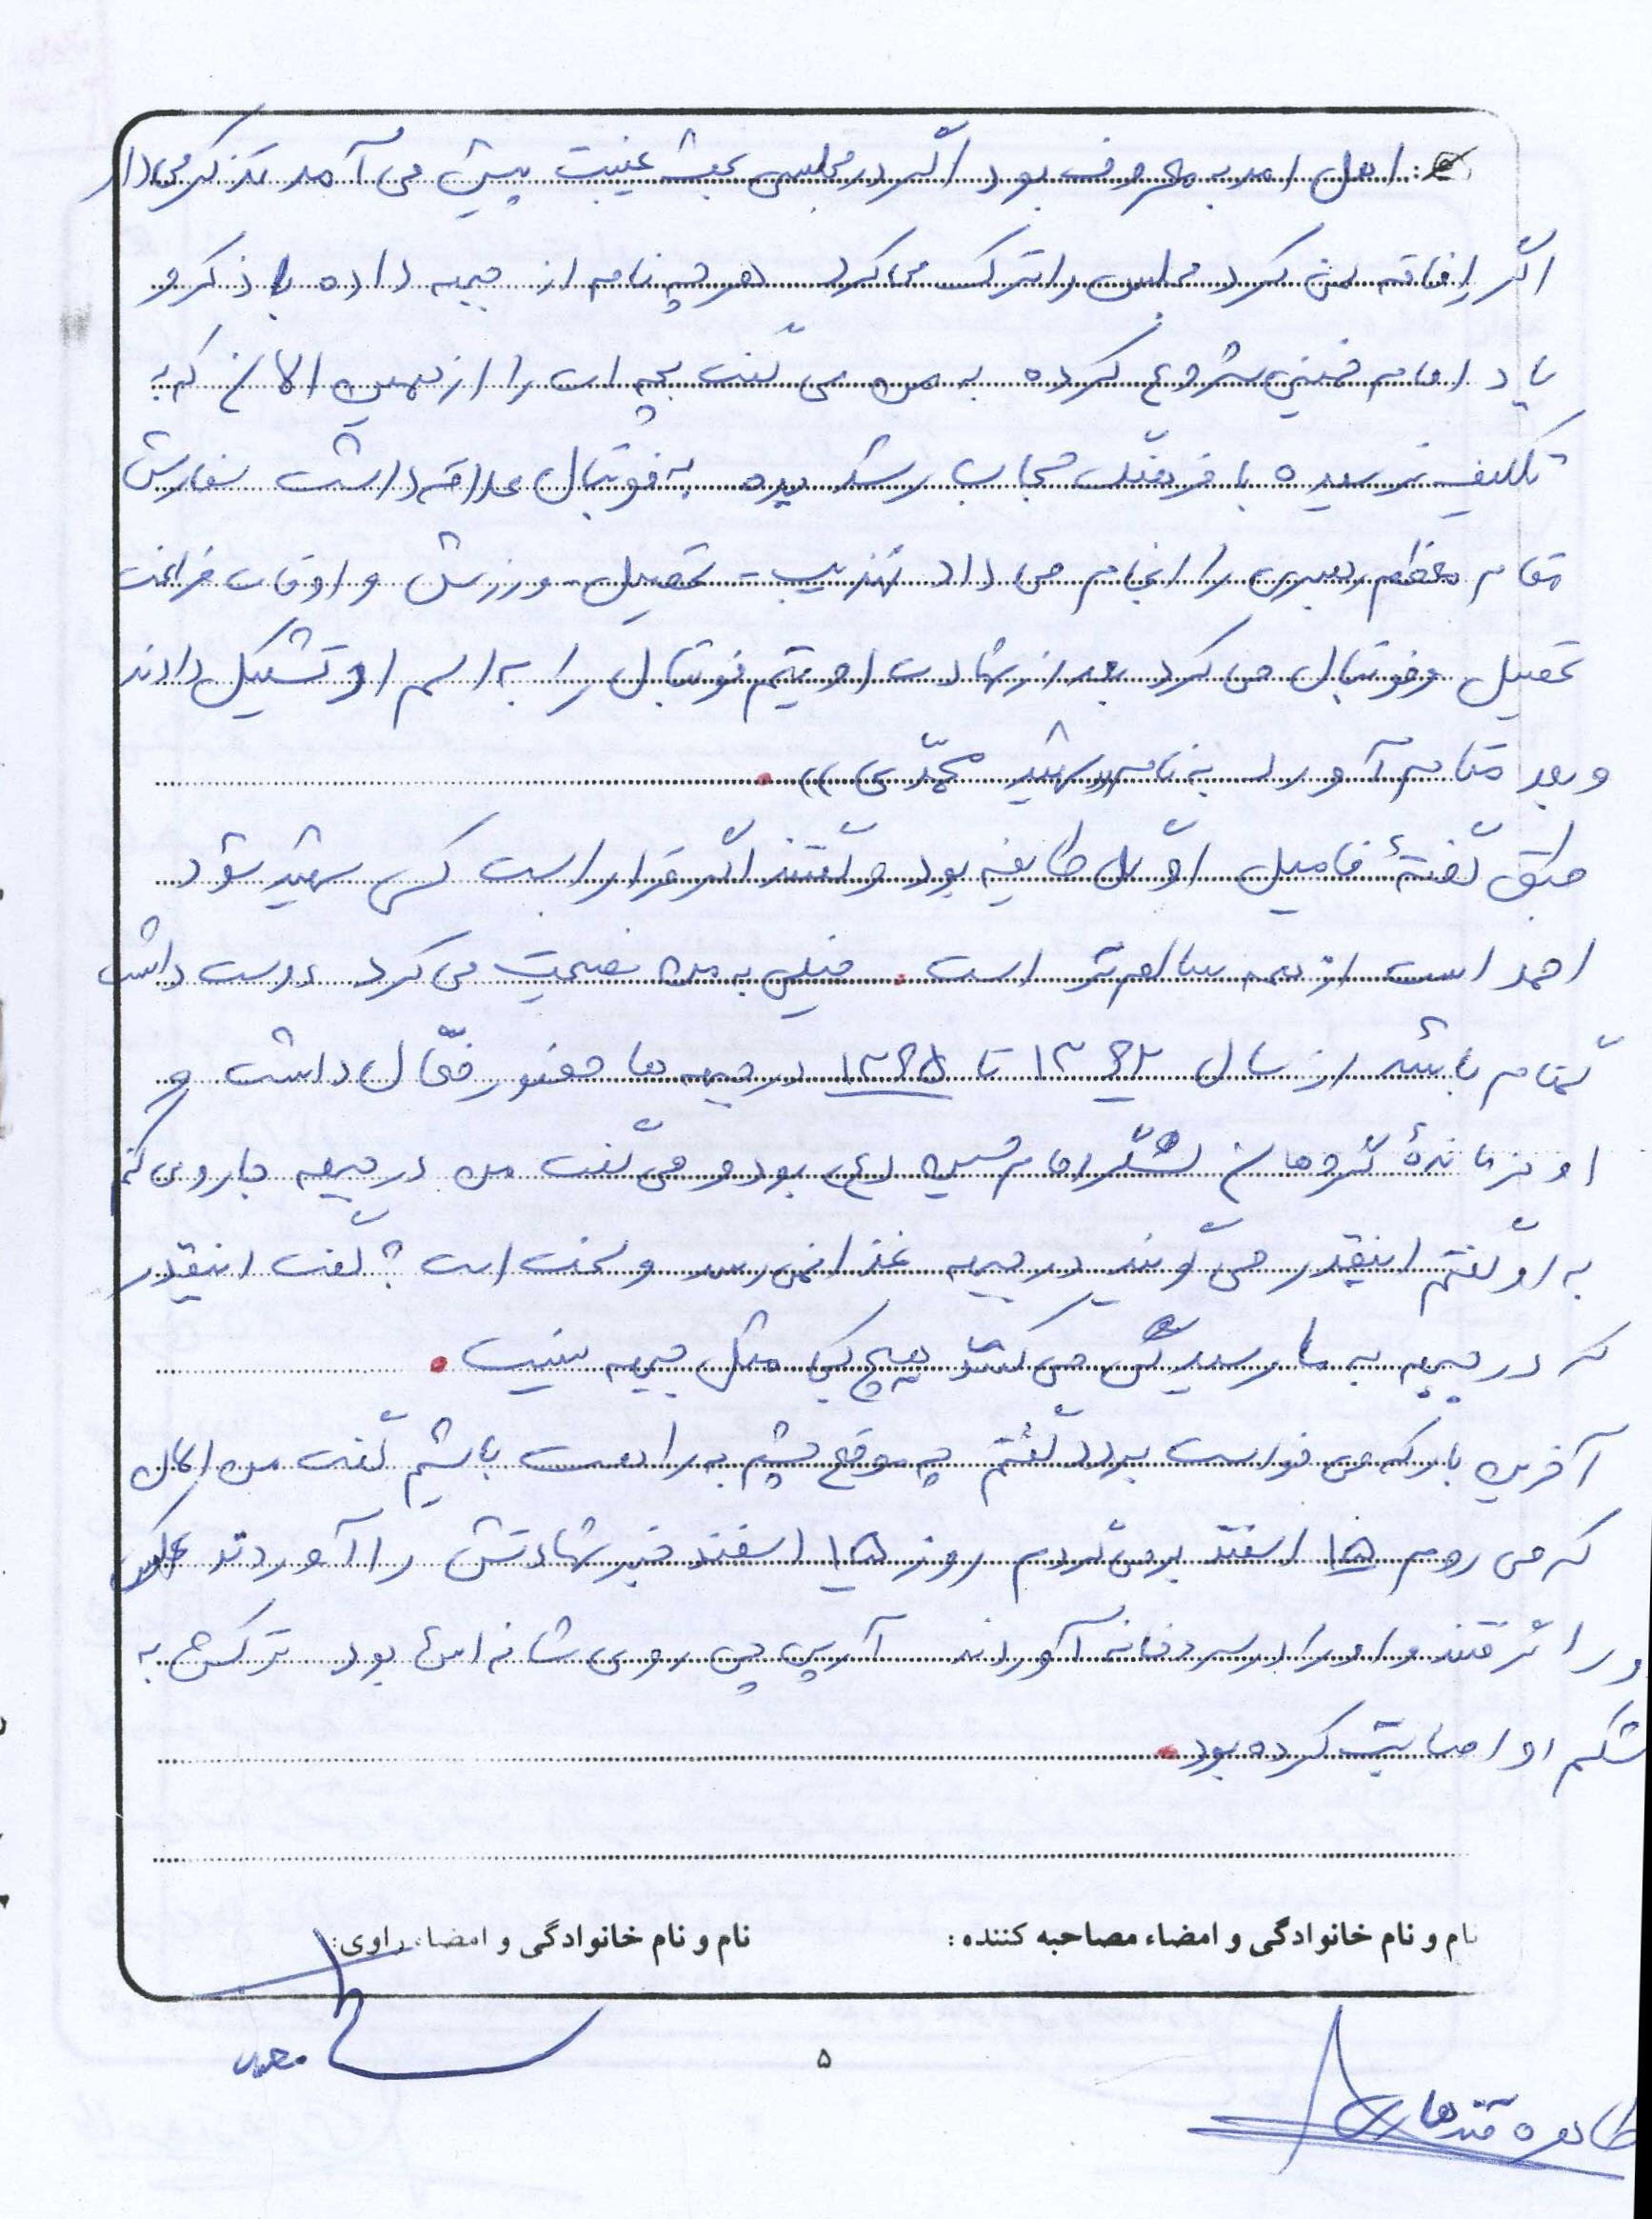 ج: اهل امر به معروف بود اگر در مجلسی بحث غیبت پیش می آمد تذکر می داد
اگر افاقه نمی کرد مجلس را ترک می کرد هر چه نامه از جبهه داده با ذکر و
یاد امام خمینی شروع کرده به من می گفت بچه ات را از همین الان که به
تکلیف نرسیده با فرهنگ حجاب رشد بده به فوتبال علاقه داشت سفارش
مقام معظم رهبری را انجام می داد تهذیب - تحصیل - ورزش و اوقات فراغت
تحصیل و فوتبال می کرد بعد از شهادت او تیم فوتبال را به اسم او تشکیل دادند
و بعد مقام آورد به نام «شهید محمّدی».
طبق گفتهٔ فامیل او گل طایفه بود و گفتند اگر قرار است کسی شهید شود
احمد است از همه سالم تر است. خیلی به من نصیحت می کرد دوست داشت
گمنام باشد از سال ۱۳۶۲ تا ۱۳۶۵ در جبهه ها حضور فعّال داشت و
او فرماندهٔ گروهان لشگر امام حسین (ع) بود و می گفت من در جبهه جارو می کنم
به او گفتم اینقدر می گویند در جبهه غذا نمی رسد و سخت است؟ گفت اینقدر
که در جبهه به ما رسیدگی می کنند هیچ کجا مثل جبهه نیست.
آخرین بار که می خواست برود گفتم چه موقع چشم به راهت باشیم گفت من الان
که می روم ۱۵ اسفند برمی گردم روز ۱۵ اسفند خبر شهادتش را آوردند عکس
و را گرفتند و او را در سردخانه آوردند آرپی جی روی شانه اش بود ترکش به
شکم او اصابت کرده بود.
نام و نام خانوادگی و امضاء مصاحبه کننده:
نام و نام خانوادگی و امضاء راوی:
محمدی
۵
طاهره قندهاری